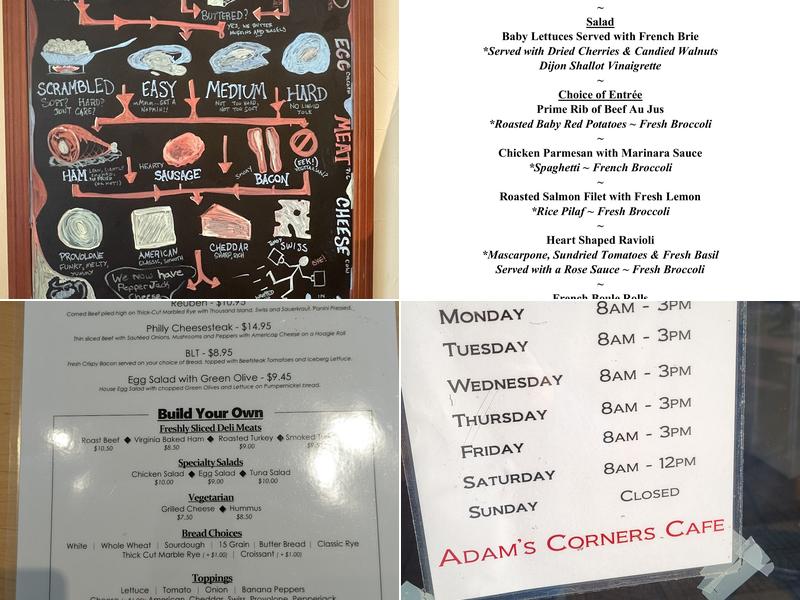 BUTTERED?
YES, WE BUTTER
MUFFINS AND BAGELS
EGG
SCRAMBLED
SOFT? HARD?
DON'T CARE?
EASY
GET A
NAPKIN!!
MEDIUM
NOT TOO HARD,
NOT TOO SOFT
HARD
NO LIQUID
YOLK
MEAT
HAM
HEARTY
SAUSAGE
SMOKY
BACON
(EEK!)
VEGETARIAN?
CHEESE
PROVOLONE
FUNKY, MELTY,
YUMMY
AMERICAN
CLASSIC, SMOOTH
CHEDDAR
SHARP, RICH
SWISS
We now have
Pepper Jack
Cheese
~
Salad
Baby Lettuces Served with French Brie
*Served with Dried Cherries & Candied Walnuts
Dijon Shallot Vinaigrette
~
Choice of Entrée
Prime Rib of Beef Au Jus
*Roasted Baby Red Potatoes ~ Fresh Broccoli
~
Chicken Parmesan with Marinara Sauce
*Spaghetti ~ French Broccoli
~
Roasted Salmon Filet with Fresh Lemon
*Rice Pilaf ~ Fresh Broccoli
~
Heart Shaped Ravioli
*Mascarpone, Sundried Tomatoes & Fresh Basil
Served with a Rose Sauce ~ Fresh Broccoli
~
French Boule Rolls
Reuben - $10.95
Corned Beef piled high on Thick-Cut Marbled Rye with Thousand Island, Swiss and Sauerkraut, Panini Pressed.
Philly Cheesesteak - $14.95
Thin sliced Beef with Sautéed Onions, Mushrooms and Peppers with American Cheese on a Hoagie Roll
BLT - $8.95
Fresh Crispy Bacon served on your choice of Bread, topped with Beefsteak Tomatoes and Iceberg Lettuce.
Egg Salad with Green Olive - $9.45
House Egg Salad with chopped Green Olives and Lettuce on Pumpernickel bread.
Build Your Own
Freshly Sliced Deli Meats
Roast Beef ◆ Virginia Baked Ham ◆ Roasted Turkey ◆ Smoked
$10.50 $8.50 $9.00
Specialty Salads
Chicken Salad ◆ Egg Salad ◆ Tuna Salad
$10.00 $9.00 $10.00
Vegetarian
Grilled Cheese ◆ Hummus
$7.50 $8.50
Bread Choices
White | Whole Wheat | Sourdough | 15 Grain | Butter Bread | Classic Rye
Thick Cut Marble Rye (+ $1.00) | Croissant (+ $1.00)
Toppings
Lettuce | Tomato | Onion | Banana Peppers
American, Cheddar, Swiss, Provolone, Pepperjack
MONDAY 8AM - 3PM
TUESDAY 8AM - 3PM
WEDNESDAY 8AM - 3PM
THURSDAY 8AM - 3PM
FRIDAY 8AM - 3PM
SATURDAY 8AM - 12PM
SUNDAY CLOSED
ADAM'S CORNERS CAFE